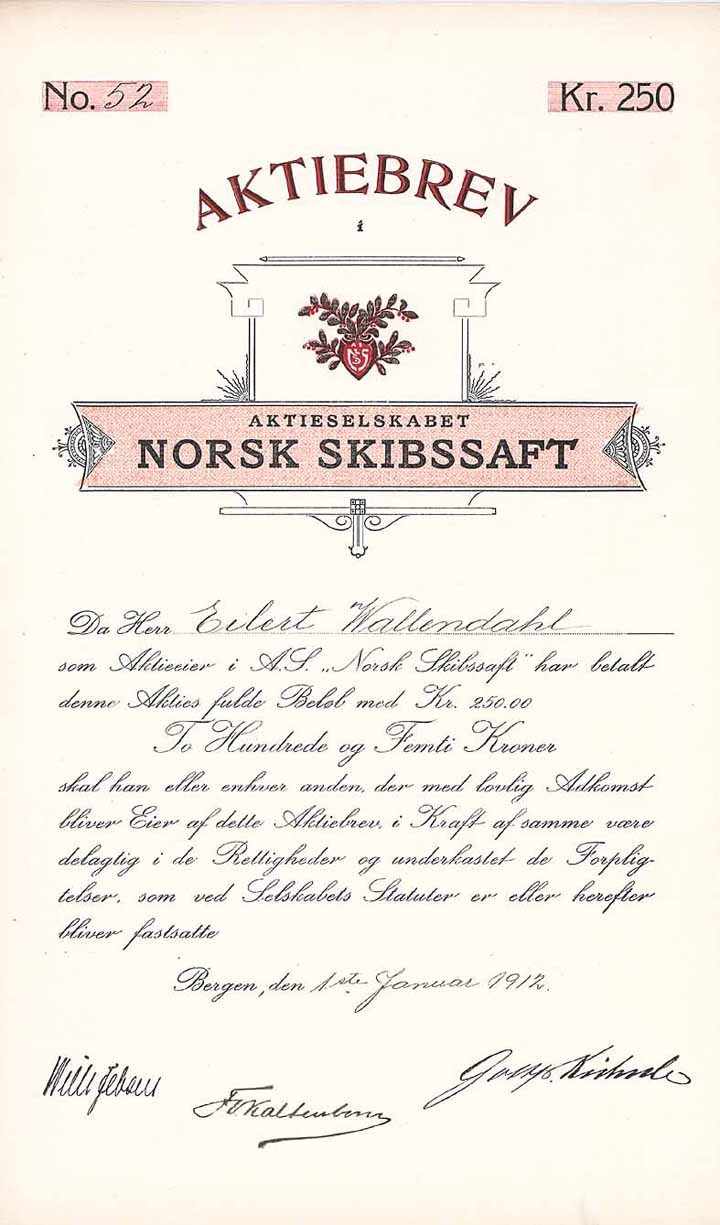 No. 52
Kr. 250
AKTIEBREV
i
AKTIESELSKABET
NORSK SKIBSSAFT
Da Herr Eilert Wallendahl
som Aktieeier i A.S. „Norsk Skibssaft" har betalt
denne Akties fulde Beløb med Kr. 250.00
To Hundrede og Femti Kroner
skal han eller enhver anden, der med lovlig Adkomst
bliver Eier af dette Aktiebrev, i Kraft af samme være
delagtig i de Rettigheder og underkastet de Forplig-
telser, som ved Selskabets Statuter er eller herefter
bliver fastsatte
Bergen, den 1.ste Januar 1912.